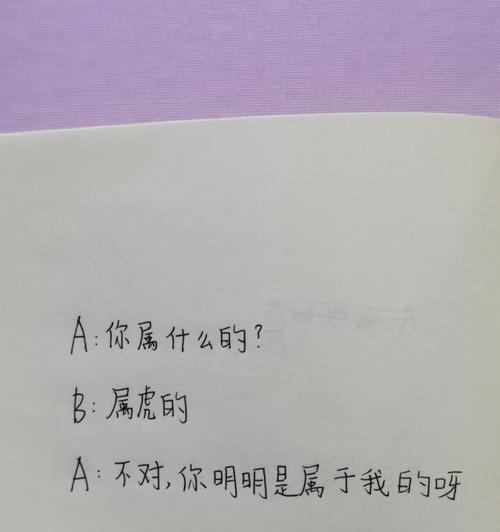 A:你属什么的?
B:属虎的
A:不对,你明明是属于我的呀